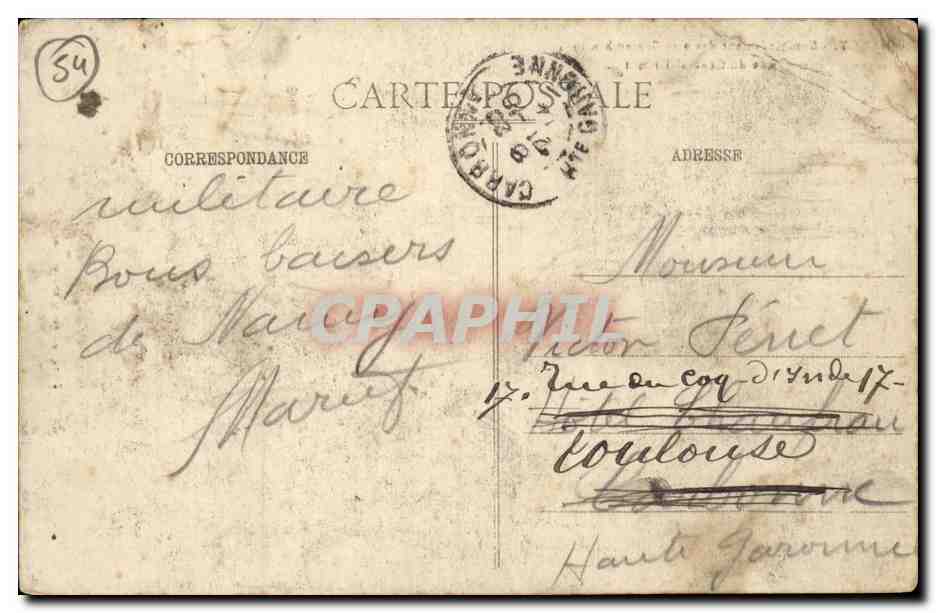 54
CARTE POSTALE
CARBONNE
Hte GARONNE
CORRESPONDANCE
militaire
Bons baisers
de Nancy
ADRESSE
Monsieur
Victor
17. Rue du Coq-d'Inde 17-
Hôtel
Toulouse
Carbonne
Haute Garonne
CPAPHIL